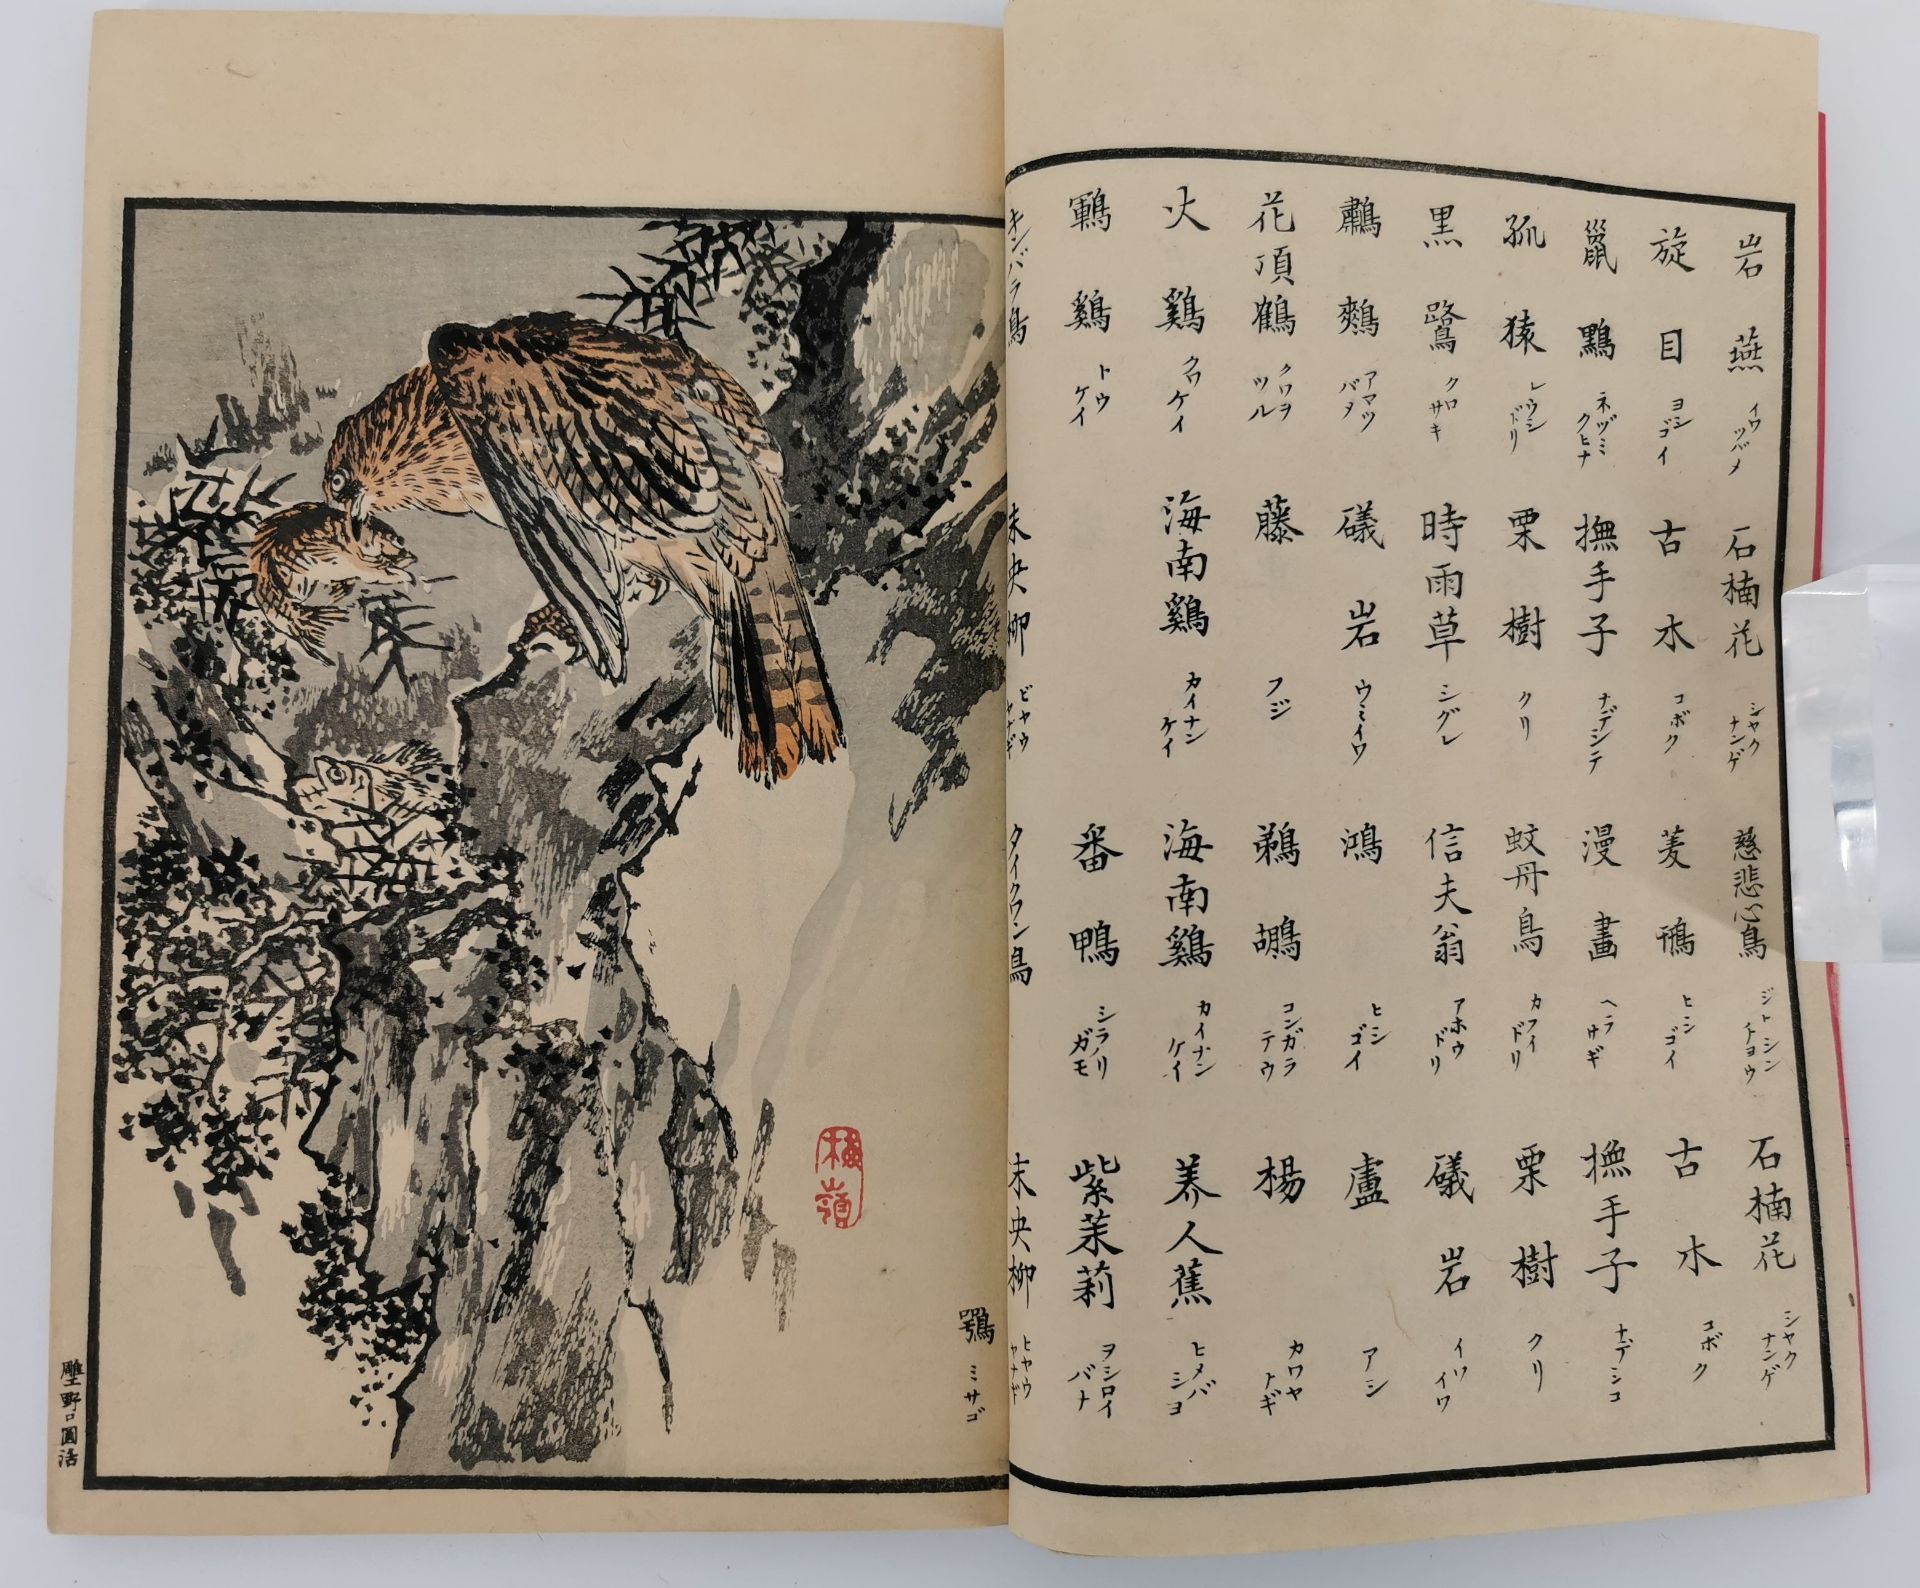 岩燕 イワツバメ 石楠花 シヤクナンゲ 慈悲心鳥 ジヒシンチヨウ 石楠花 シヤクナンゲ
旋目 ヨシゴイ 古木 コボク 茭鳽 ヒシゴイ 古木 コボク
鼠 ネヅミクヒナ 撫手子 ナデシテ 漫畫 ヘラサギ 撫手子 ナデシコ
猿 レウシドリ 栗樹 クリ 蚊母鳥 カフイドリ 栗樹 クリ
黒鷺 クロサキ 時雨草 シグレ 信夫翁 アホウドリ 礒岩 イソイワ
鷫鷞 アマツバメ 礒岩 ウミイワ 鴻 ヒシゴイ 蘆 アシ
花頂鶴 クワヲツル 藤 フジ 鵜鶘 コンガラテウ 楊 カワヤトギ
火鷄 クワケイ 海南鷄 カイナンケイ 海南鷄 カイナンケイ 美人蕉 ヒメバシヨ
鷄 トウケイ 番鴨 シラノリガモ 紫茉莉 ヲシロイバナ
キンバラ鳥 未央柳 ビヤウヤナギ タイクワン鳥 未央柳 ヒヤウヤナギ
鶚 ミサゴ
楳嶺
雕工野口圓活